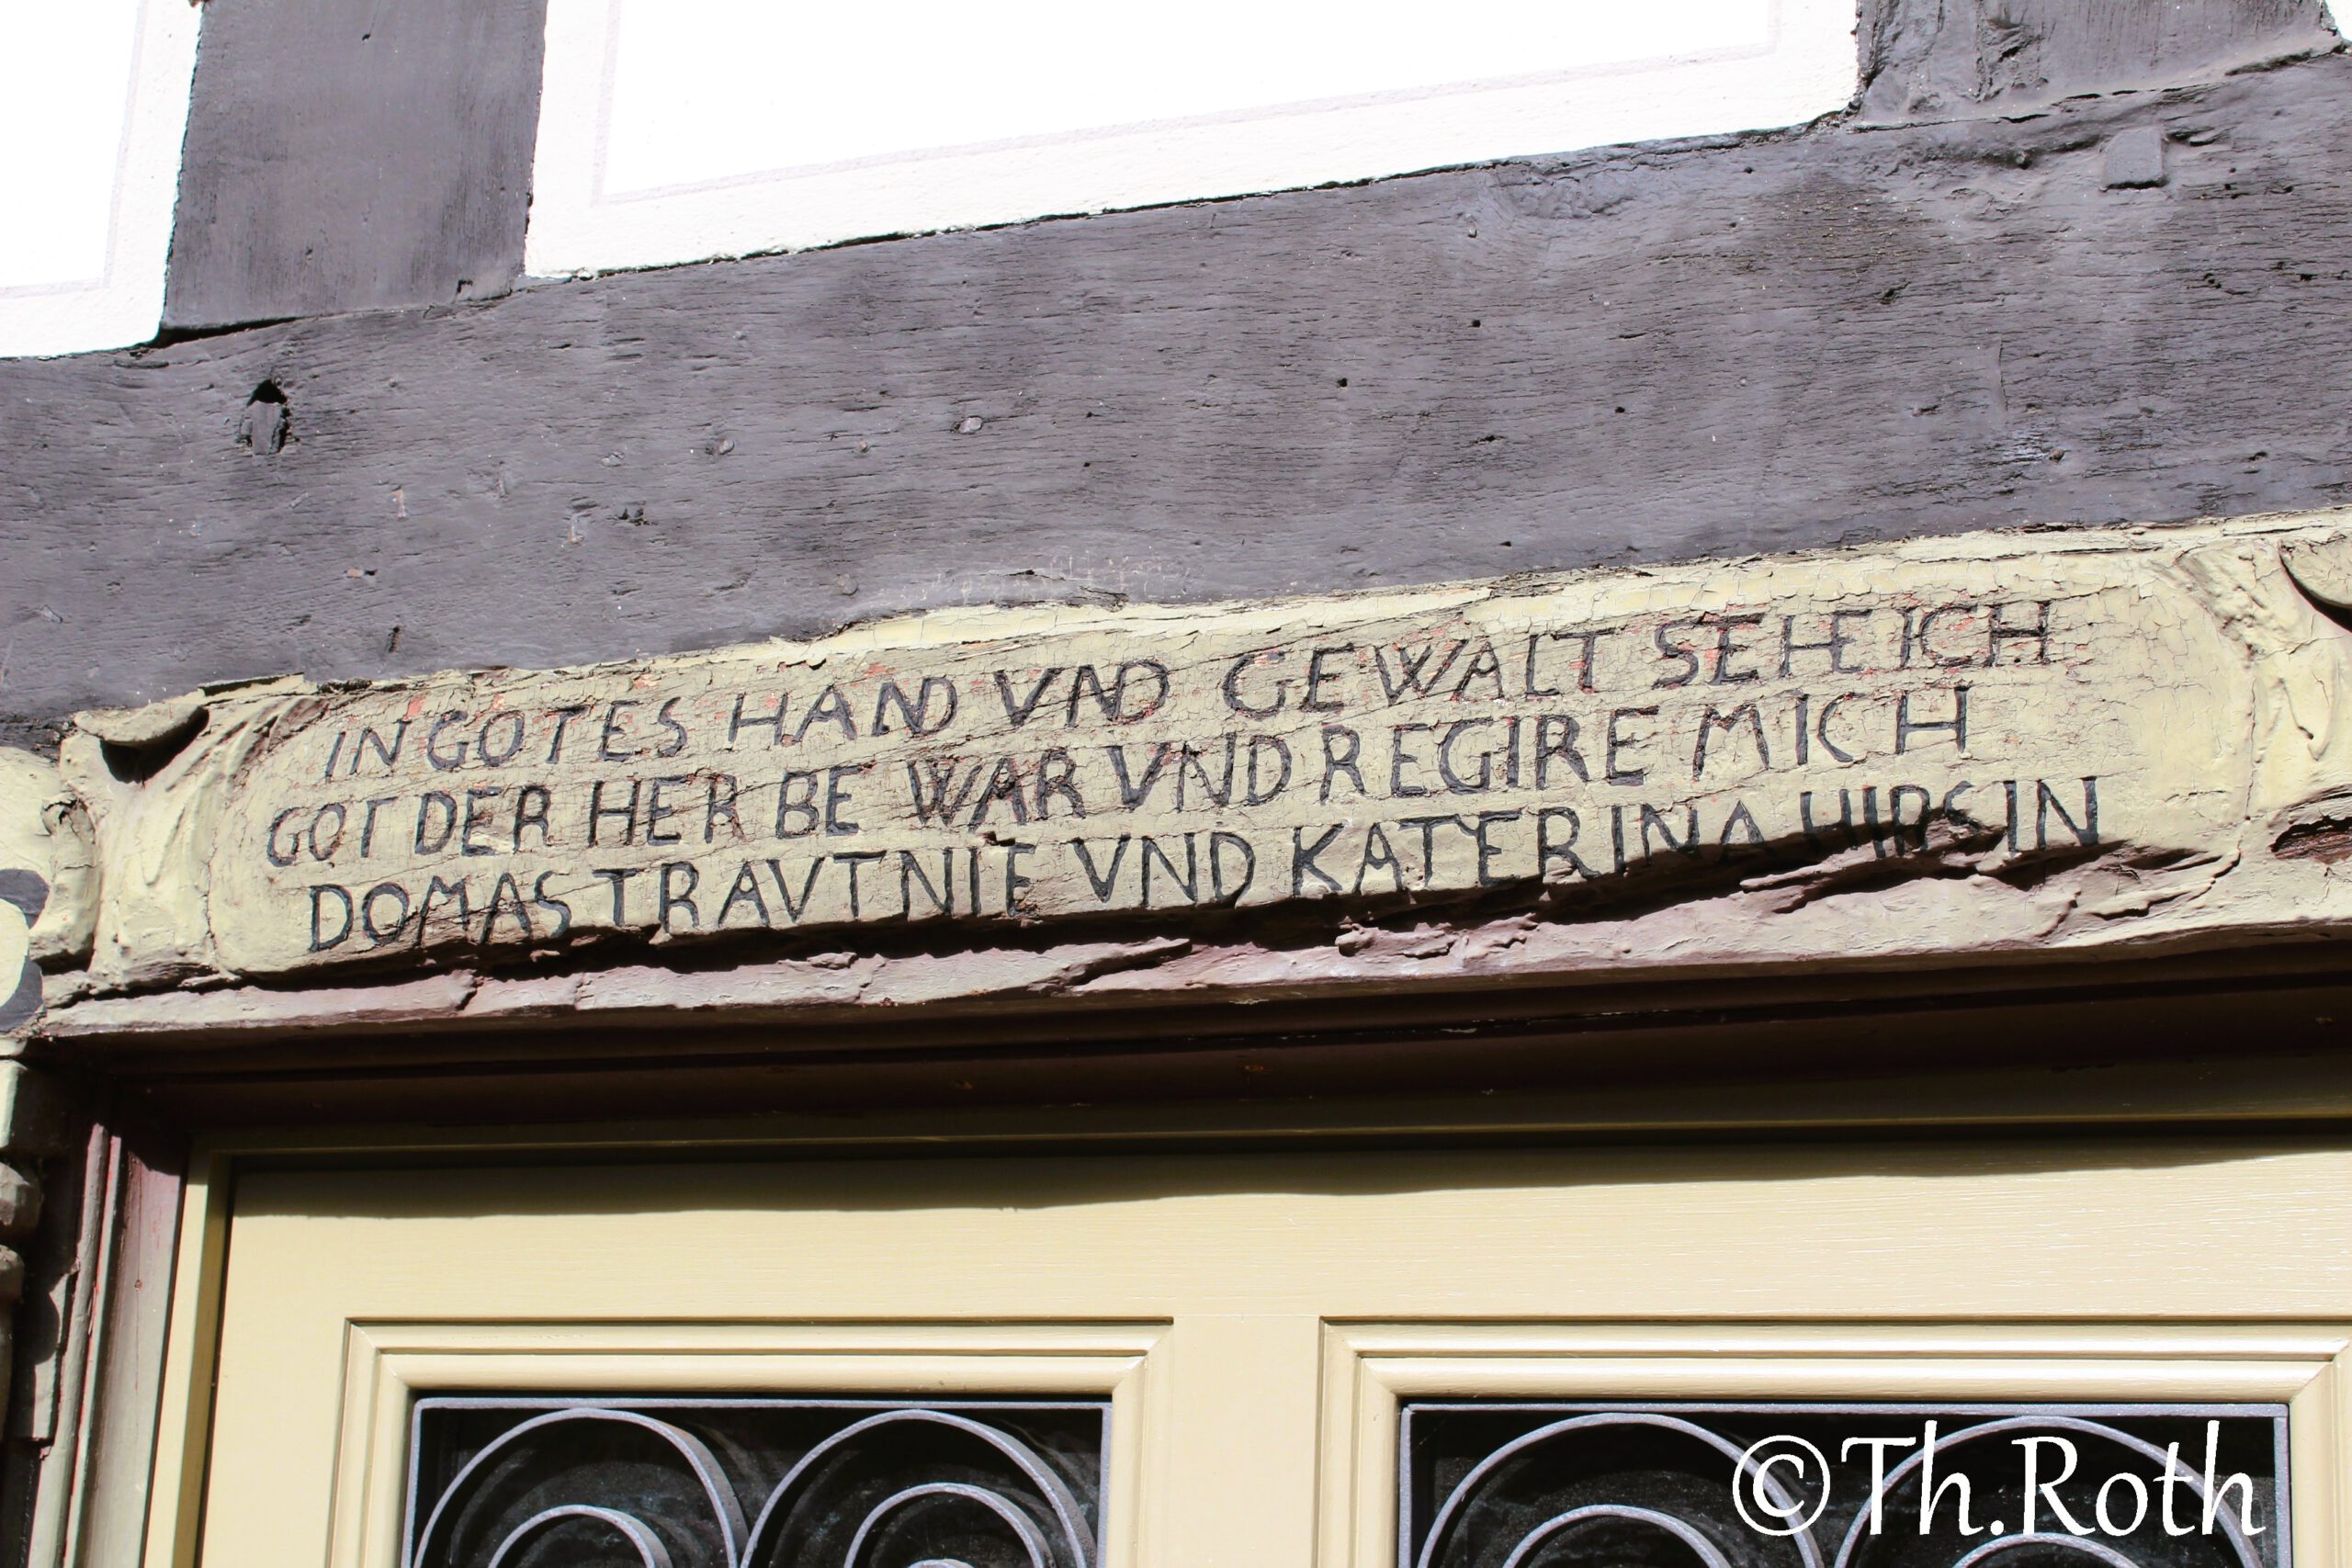 IN GOTES HAND VND GEWALT SEHE ICH
GOT DER HER BE WAR VND REGIRE MICH
DOMAS TRAVTNIE VND KATERINA HIRSIN
©Th.Roth